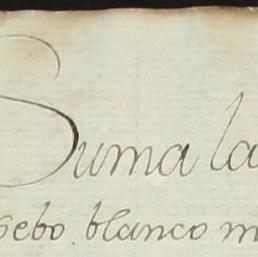 Suma la
sebo blanco m